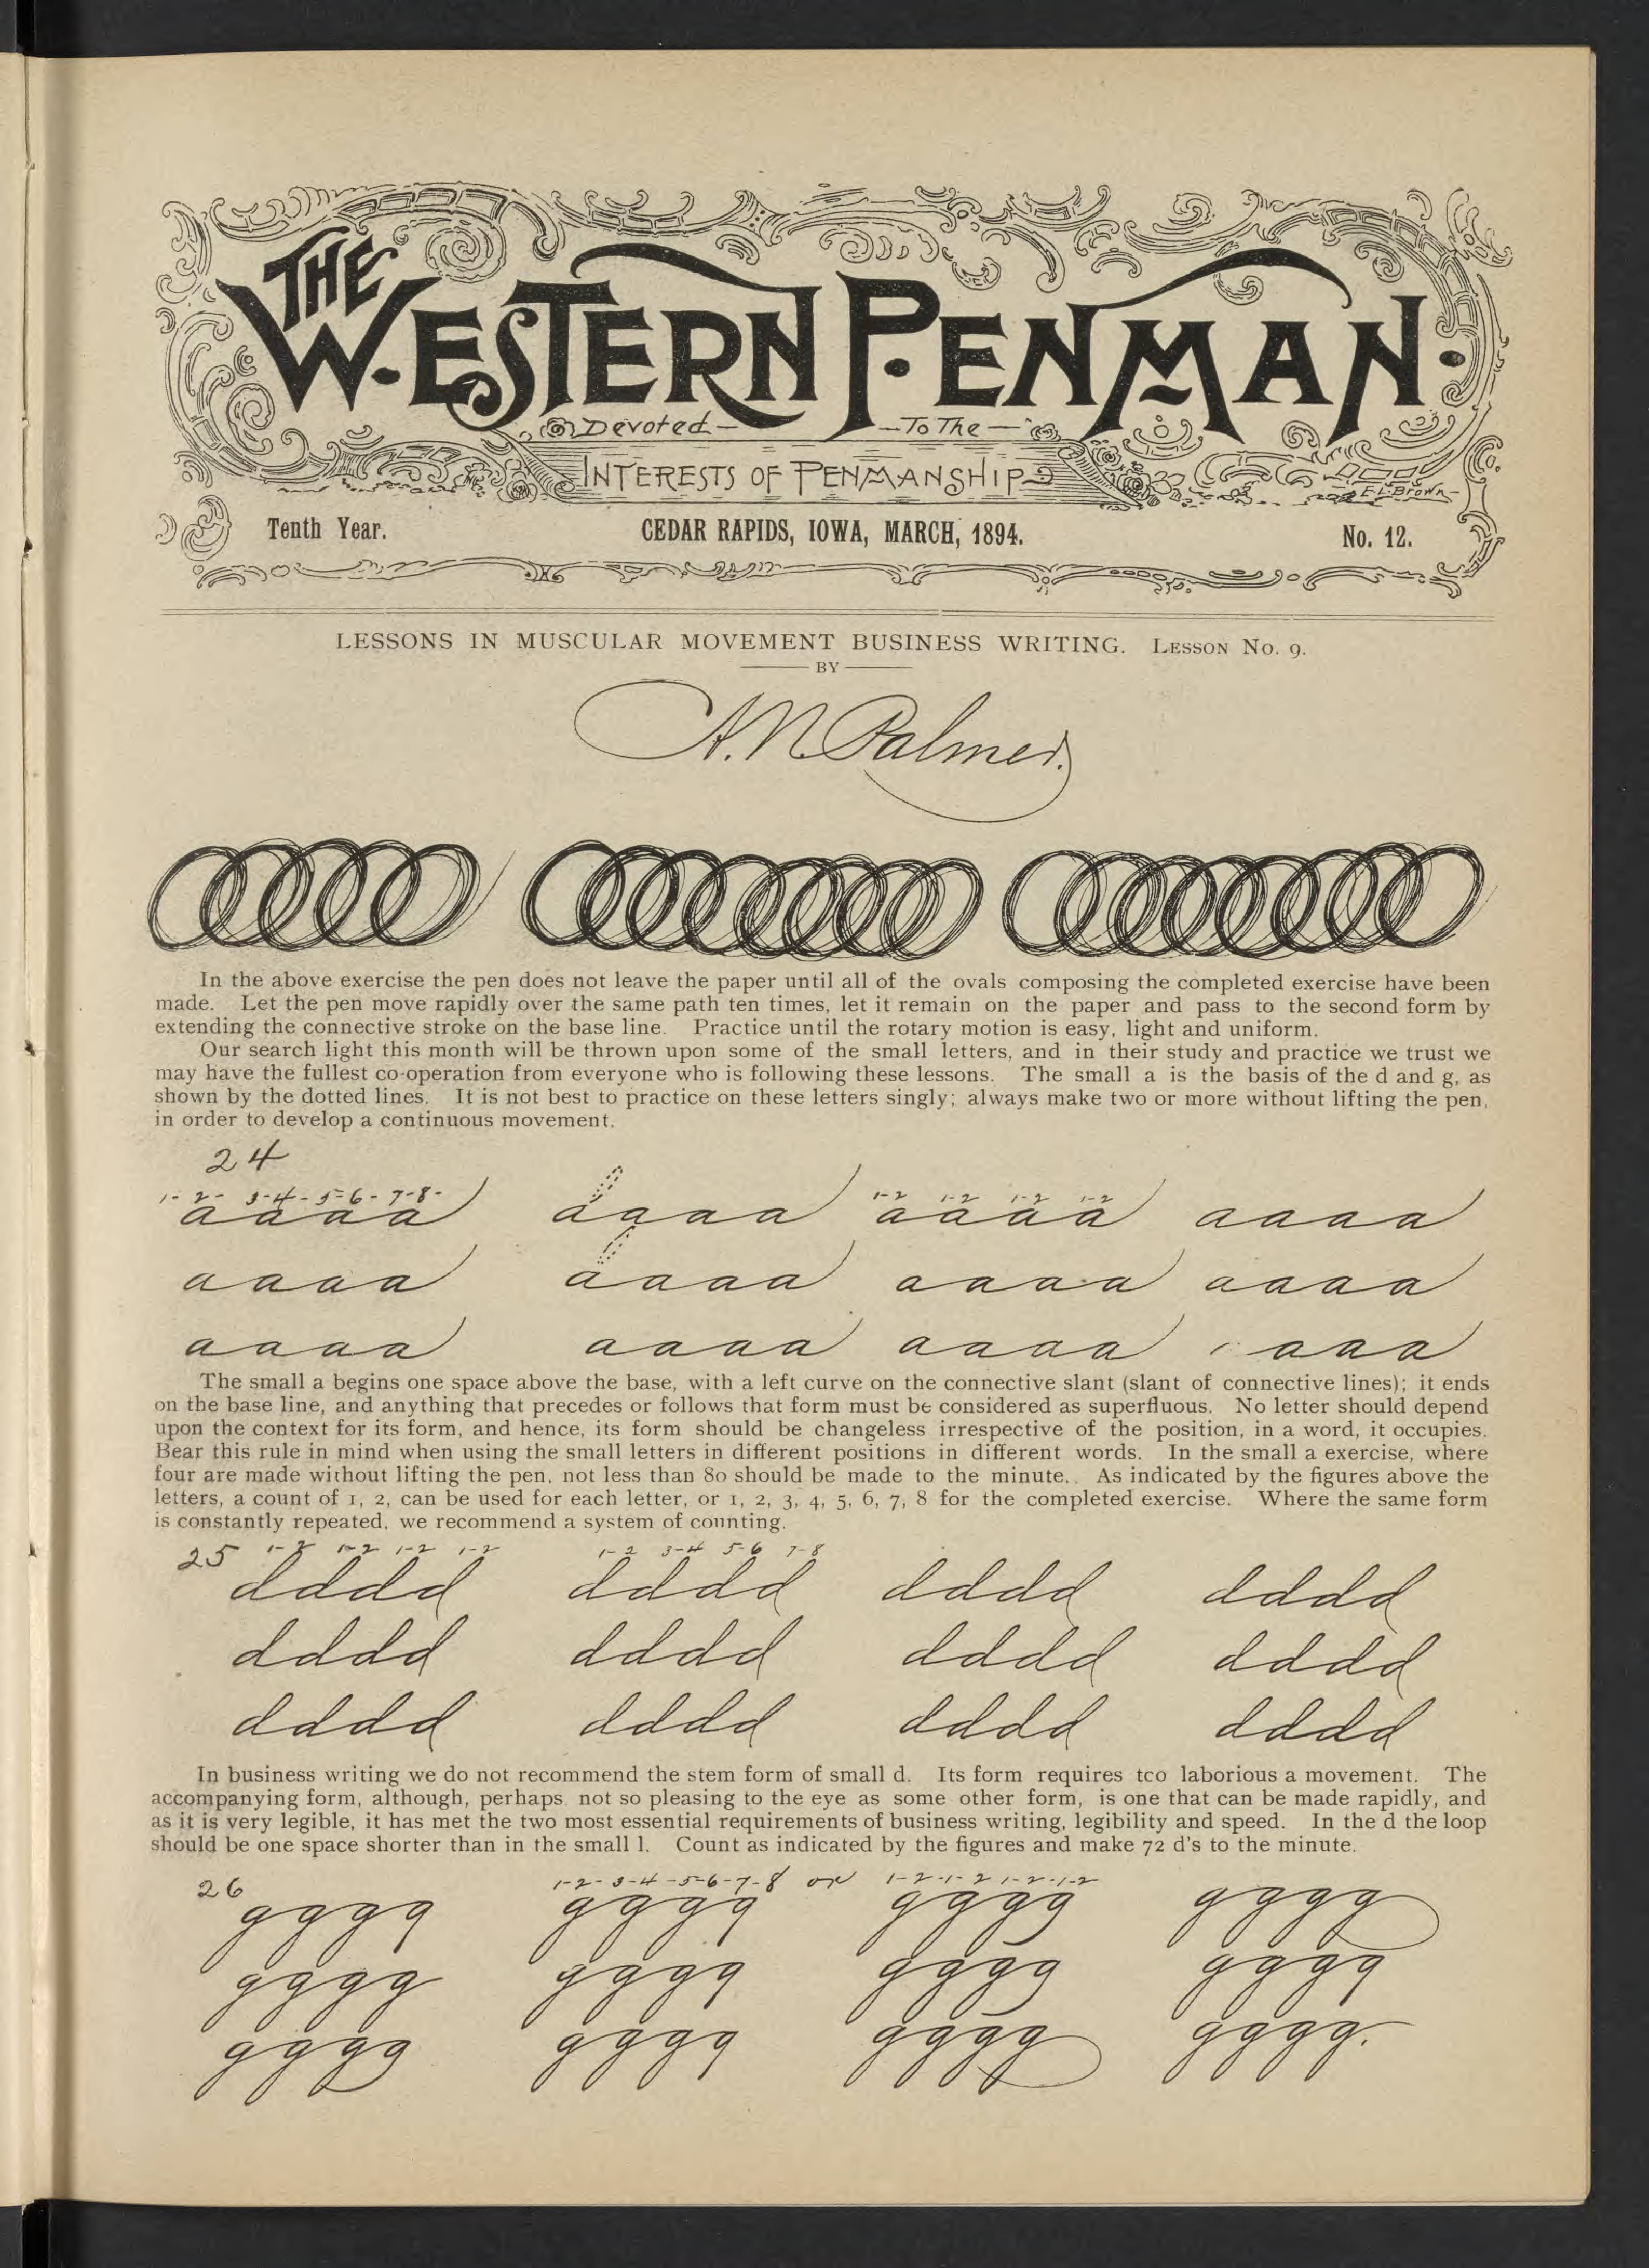 THE
WESTERN PENMAN.
Devoted To The
INTERESTS OF PENMANSHIP
E.L. Brown
Tenth Year. CEDAR RAPIDS, IOWA, MARCH, 1894. No. 12.
LESSONS IN MUSCULAR MOVEMENT BUSINESS WRITING. LESSON NO. 9.
BY
A. N. Palmer.
In the above exercise the pen does not leave the paper until all of the ovals composing the completed exercise have been
made. Let the pen move rapidly over the same path ten times, let it remain on the paper and pass to the second form by
extending the connective stroke on the base line. Practice until the rotary motion is easy, light and uniform.
Our search light this month will be thrown upon some of the small letters, and in their study and practice we trust we
may have the fullest co-operation from everyone who is following these lessons. The small a is the basis of the d and g, as
shown by the dotted lines. It is not best to practice on these letters singly; always make two or more without lifting the pen,
in order to develop a continuous movement.
24
1- 2- 3-4-5-6-7-8- 1-2 1-2 1-2 1-2
a a a a a a a a a a a a a a a a
a a a a a a a a a a a a a a a a
a a a a a a a a a a a a a a a
The small a begins one space above the base, with a left curve on the connective slant (slant of connective lines); it ends
on the base line, and anything that precedes or follows that form must be considered as superfluous. No letter should depend
upon the context for its form, and hence, its form should be changeless irrespective of the position, in a word, it occupies.
Bear this rule in mind when using the small letters in different positions in different words. In the small a exercise, where
four are made without lifting the pen, not less than 80 should be made to the minute. As indicated by the figures above the
letters, a count of 1, 2, can be used for each letter, or 1, 2, 3, 4, 5, 6, 7, 8 for the completed exercise. Where the same form
is constantly repeated, we recommend a system of counting.
25 1-2 1-2 1-2 1-2 1-2 3-4 5-6 7-8
d d d d d d d d d d d d d d d d
d d d d d d d d d d d d d d d d
d d d d d d d d d d d d d d d d
In business writing we do not recommend the stem form of small d. Its form requires tco laborious a movement. The
accompanying form, although, perhaps not so pleasing to the eye as some other form, is one that can be made rapidly, and
as it is very legible, it has met the two most essential requirements of business writing, legibility and speed. In the d the loop
should be one space shorter than in the small l. Count as indicated by the figures and make 72 d's to the minute.
26 1-2-3-4-5-6-7-8 or 1-2-1-2 1-2-1-2
g g g g g g g g g g g g g g g g
g g g g g g g g g g g g g g g g
g g g g g g g g g g g g g g g g.